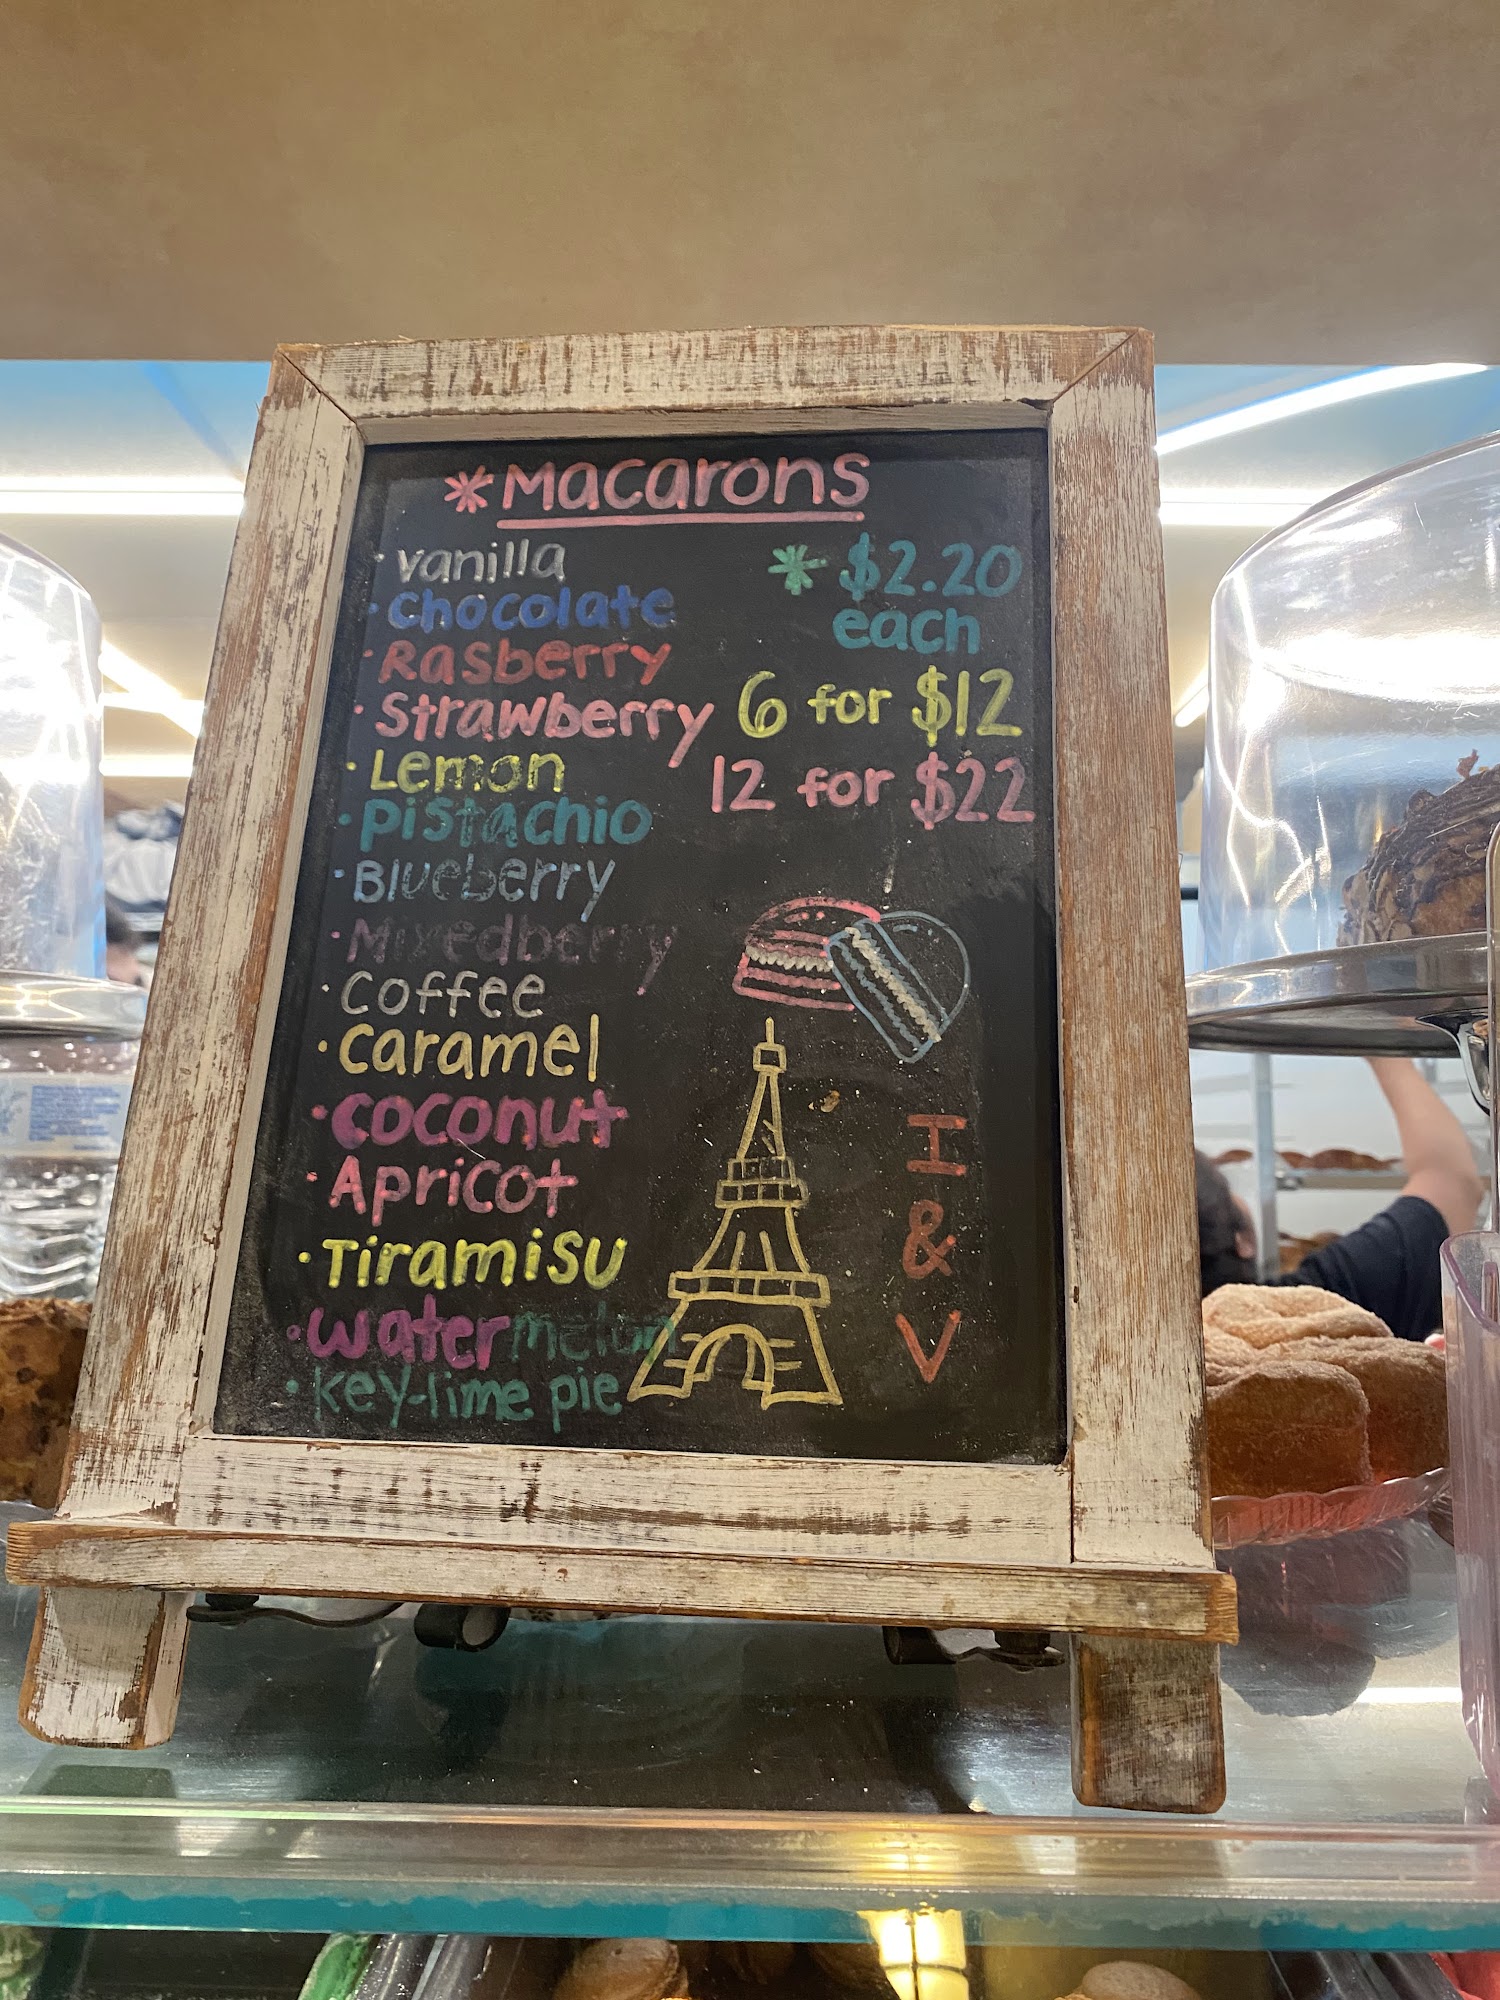 *Macarons
· vanilla
· chocolate
· Rasberry
· Strawberry
· Lemon
· Pistachio
· Blueberry
· Mixedberry
· Coffee
· Caramel
· Coconut
· Apricot
· Tiramisu
· watermelon
· key-lime pie
* $2.20
each
6 for $12
12 for $22
I & V